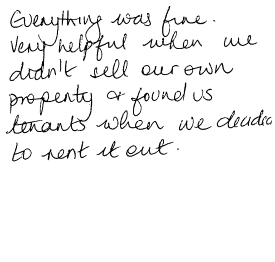 Everything was fine.
Very helpful when we
didn't sell our own
property & found us
tenants when we decided
to rent it out.